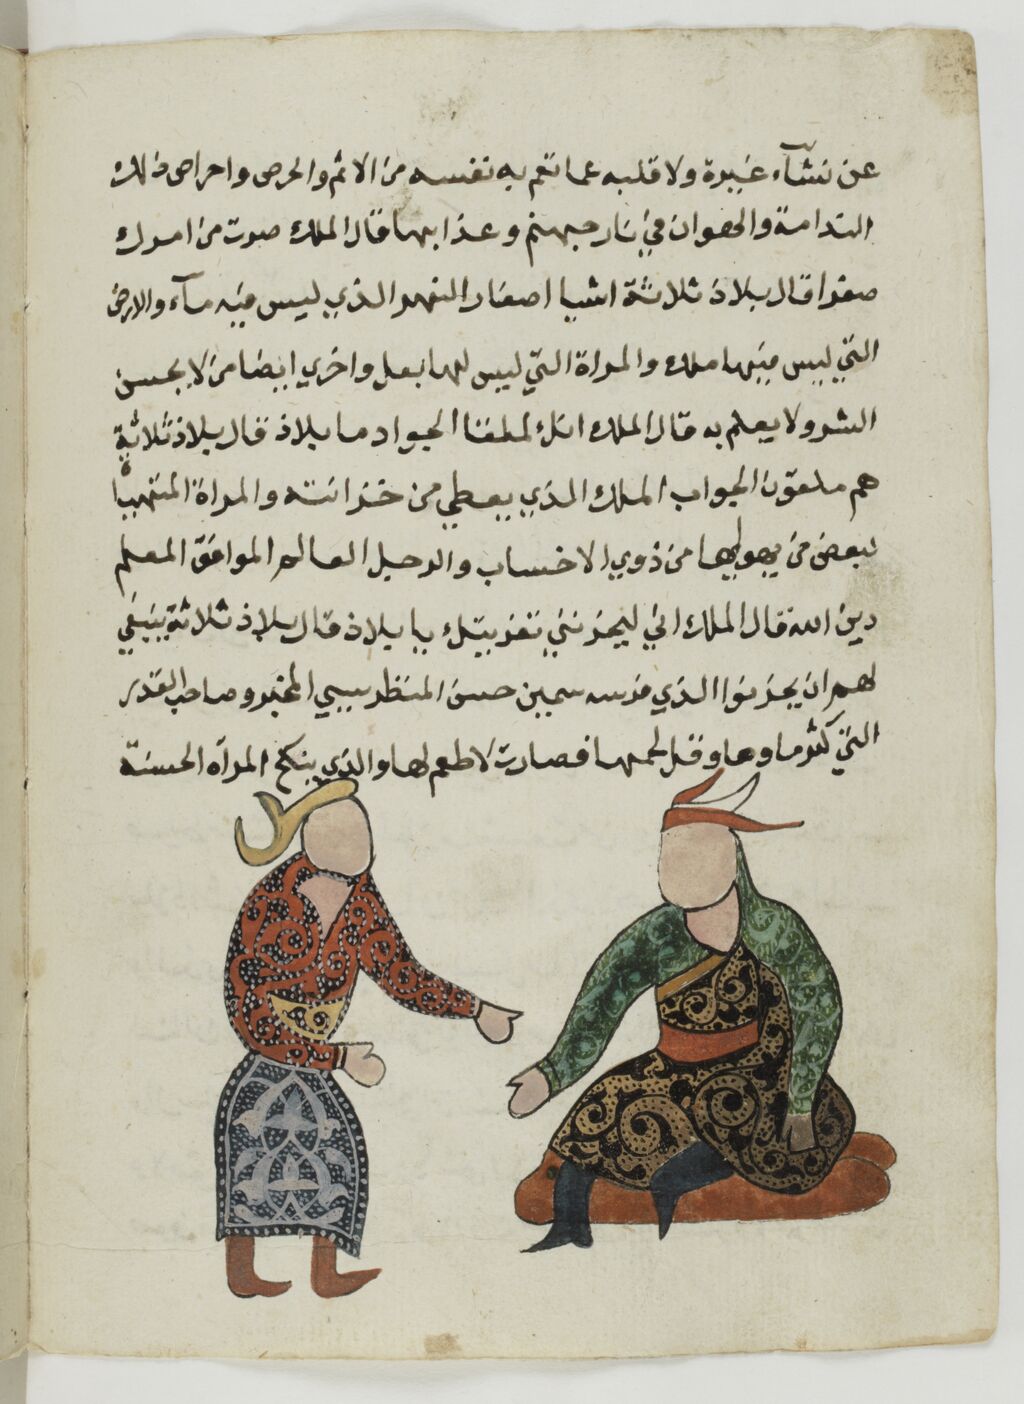 عن نشآء غيره ولا قلبه عما تهم به نفسه من الاثم والحرص واحراص ذلك
الندامة والهوان في نار جهنم وعذابها قال الملك صوت من امرك
صفرا قال بلاذ ثلاثة اشيا اصفار النهر الذي ليس فيه مآء والارض
التي ليس فيها ملك والمراة التي ليس لها بعل واخري ايضا من لا يحسن
الشر ولا يعلم به قال الملك انك لملقنا الجواد ما بلاذ قال بلاذ ثلاثة
هم ملقون الجواب الملك الذي يعطي من خزائنه والمراة المتهيبأة
لبعض من يهوليها من ذوي الاحساب والرجل العالم الموافق المعلم
دين الله قال الملك اني ليحزنني تعزيتك يا بلاذ قال بلاذ ثلاثة ينبغي
لهم ان يحزنوا الذي فرسه سمين حسن المنظر سيي المخبر وصاحب القدر
التي كثر ماوها وقل لحمها فصارت لا طعم لها والذي ينكح المرآه الحسنة